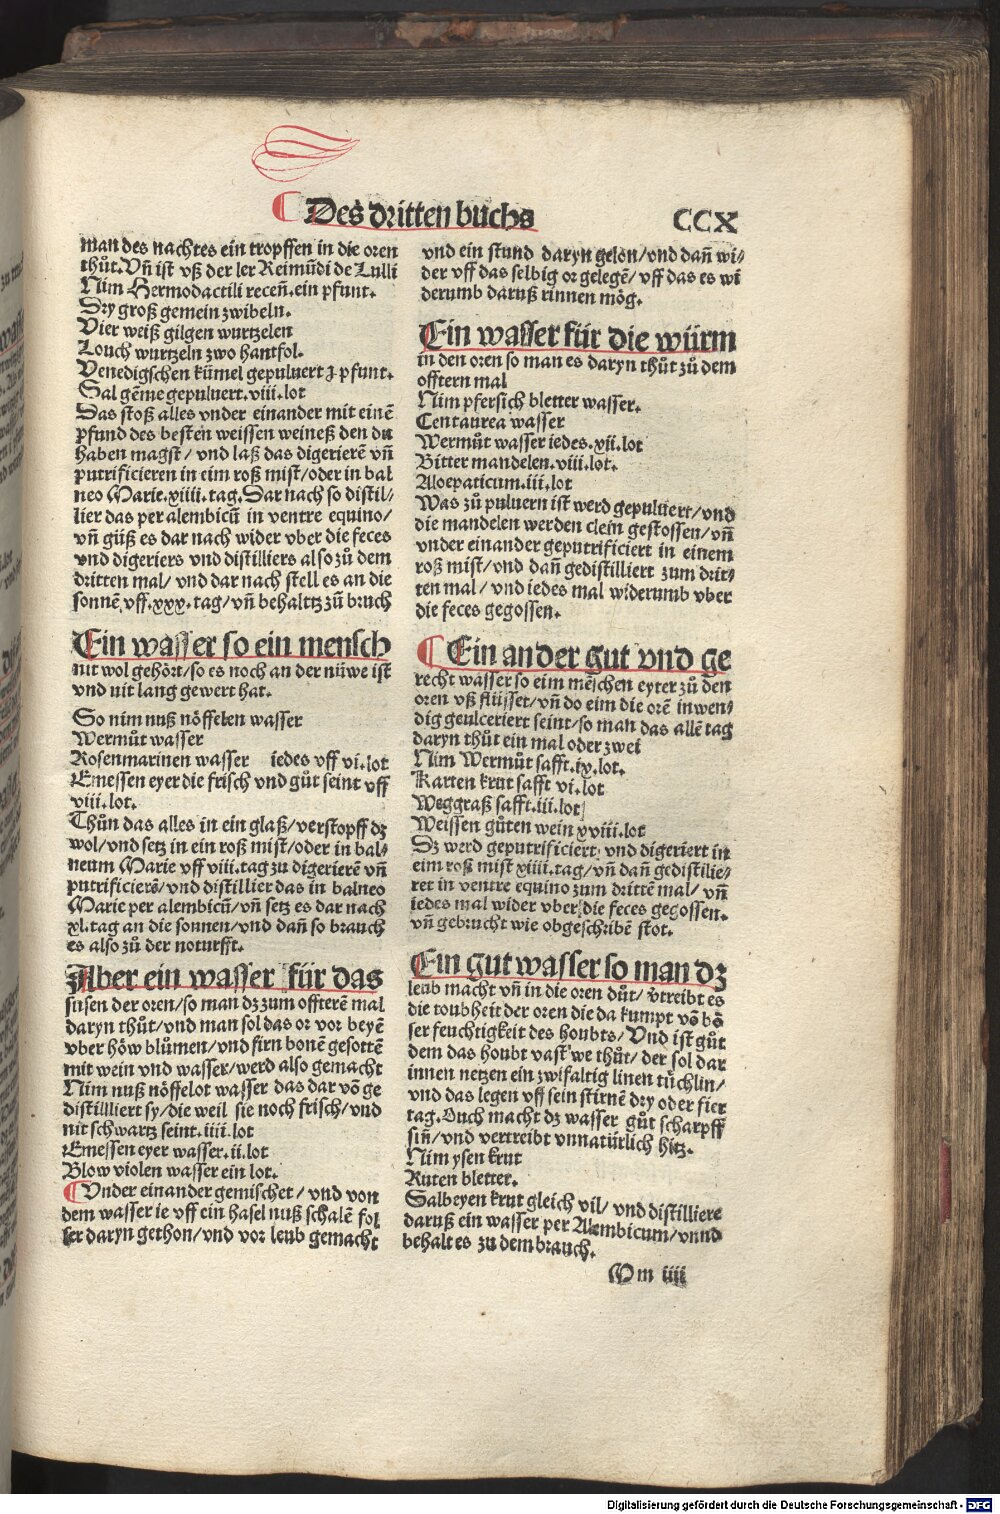 Des dritten buchs CCX
man des nachtes ein tropffen in die oren
thůt. Vñ ist vß der ler Reimũdi de Lulli
Nim Hermodactili receñ. ein pfunt.
Dry groß gemein zwibeln.
Vier weiß gilgen wurtzelen
Louch wurtzeln zwo hantfol.
Venedigschen kümel gepuluert ʒ pfunt.
Sal gēme gepuluert. viii. lot
Das stoß alles vnder einander mit einē
pfund des besten weissen weineß den du
haben magst/ vnd laß das digerierē vñ
putrificieren in eim roß mist/oder in bal
neo Marie. xiiii. tag. Dar nach so distil/
lier das per alembicũ in ventre equino/
vñ güß es dar nach wider vber die feces
vnd digeriers vnd distilliers also zů dem
dritten mal/ vnd dar nach stell es an die
sonnē vff. xxx. tag/ vñ behaltz zů bruch
Ein wasser so ein mensch
nit wol gehört/so es noch an der nüwe ist
vnd nit lang gewert hat.
So nim nuß nöffelen wasser
Wermůt wasser
Rosenmarinen wasser iedes vff vi. lot
Emessen eyer die frisch vnd gůt seint vff
viii. lot.
Thůn das alles in ein glaß/verstopff dz
wol/vnd setz in ein roß mist/oder in bal/
neum Marie vff viii. tag zu digerierē vñ
putrificierē/vnd distillier das in balneo
Marie per alembicũ/vñ setz es dar nach
xl. tag an die sonnen/vnd dañ so brauch
es also zů der noturfft.
Aber ein wasser für das
susen der oren/so man dz zum offterē mal
daryn thůt/vnd man sol das or vor beyē
vber höw blůmen/vnd firn bonē gesottē
mit wein vnd wasser/werd also gemacht
Nim nuß nöffelot wasser das dar vō ge
distilliert sy/die weil sie noch frisch/vnd
nit schwartz seint. iiii. lot
Emessen eyer wasser. ii. lot
Blow violen wasser ein lot.
Vnder einander gemischet/ vnd von
dem wasser ie vff ein hasel nuß schalē fol
ser daryn gethon/vnd vor leub gemacht
vnd ein stund daryn gelon/vnd dañ wi/
der vff das selbig or gelegē/ vff das es wi
derumb daruß rinnen mög.
Ein wasser für die würm
in den oren so man es daryn thůt zů dem
offtern mal
Nim pfersich bletter wasser.
Centaurea wasser
Wermůt wasser iedes. xii. lot
Bitter mandelen. viii. lot.
Aloepaticum. iii. lot
Was zů puluern ist werd gepuluert/vnd
die mandelen werden clein gestossen/vñ
vnder einander geputrificiert in einem
roß mist/vnd dañ gedistilliert zum drit/
ten mal/ vnd iedes mal widerumb vber
die feces gegossen.
Ein ander gut vnd ge
recht wasser so eim mēschen eyter zů den
oren vß flüsset/vñ do eim die orē inwen/
dig geulceriert seint/so man das allē tag
daryn thůt ein mal oder zwei
Nim Wermůt safft. ix. lot.
Karten krut safft vi. lot
Weggraß safft. iii. lot
Weissen gůten wein xviii. lot
Dz werd geputrificiert vnd digeriert in
eim roß mist xiiii. tag/vñ dañ gedistilie/
ret in ventre equino zum drittē mal/ vñ
iedes mal wider vber die feces gegossen.
vñ gebrucht wie obgeschribē stot.
Ein gut wasser so man dz
leub macht vñ in die oren důt/ v̄treibt es
die toubheit der oren die da kumpt vō bö
ser feuchtigkeit des houbts/ Vnd ist gůt
dem das houbt vast we thůt/ der sol dar
innen netzen ein zwifaltig linen tüchlin/
vnd das legen vff sein stirnē dry oder fier
tag. Ouch macht dz wasser gůt scharpff
siñ/vnd vertreibt vnnatürlich hitz.
Nim ysen krut
Ruten bletter.
Salbeyen krut gleich vil/ vnd distilliere
daruß ein wasser per Alembicum/vnnd
behalt es zu dem brauch.
Mm iiii
Digitalisierung gefördert durch die Deutsche Forschungsgemeinschaft - DFG